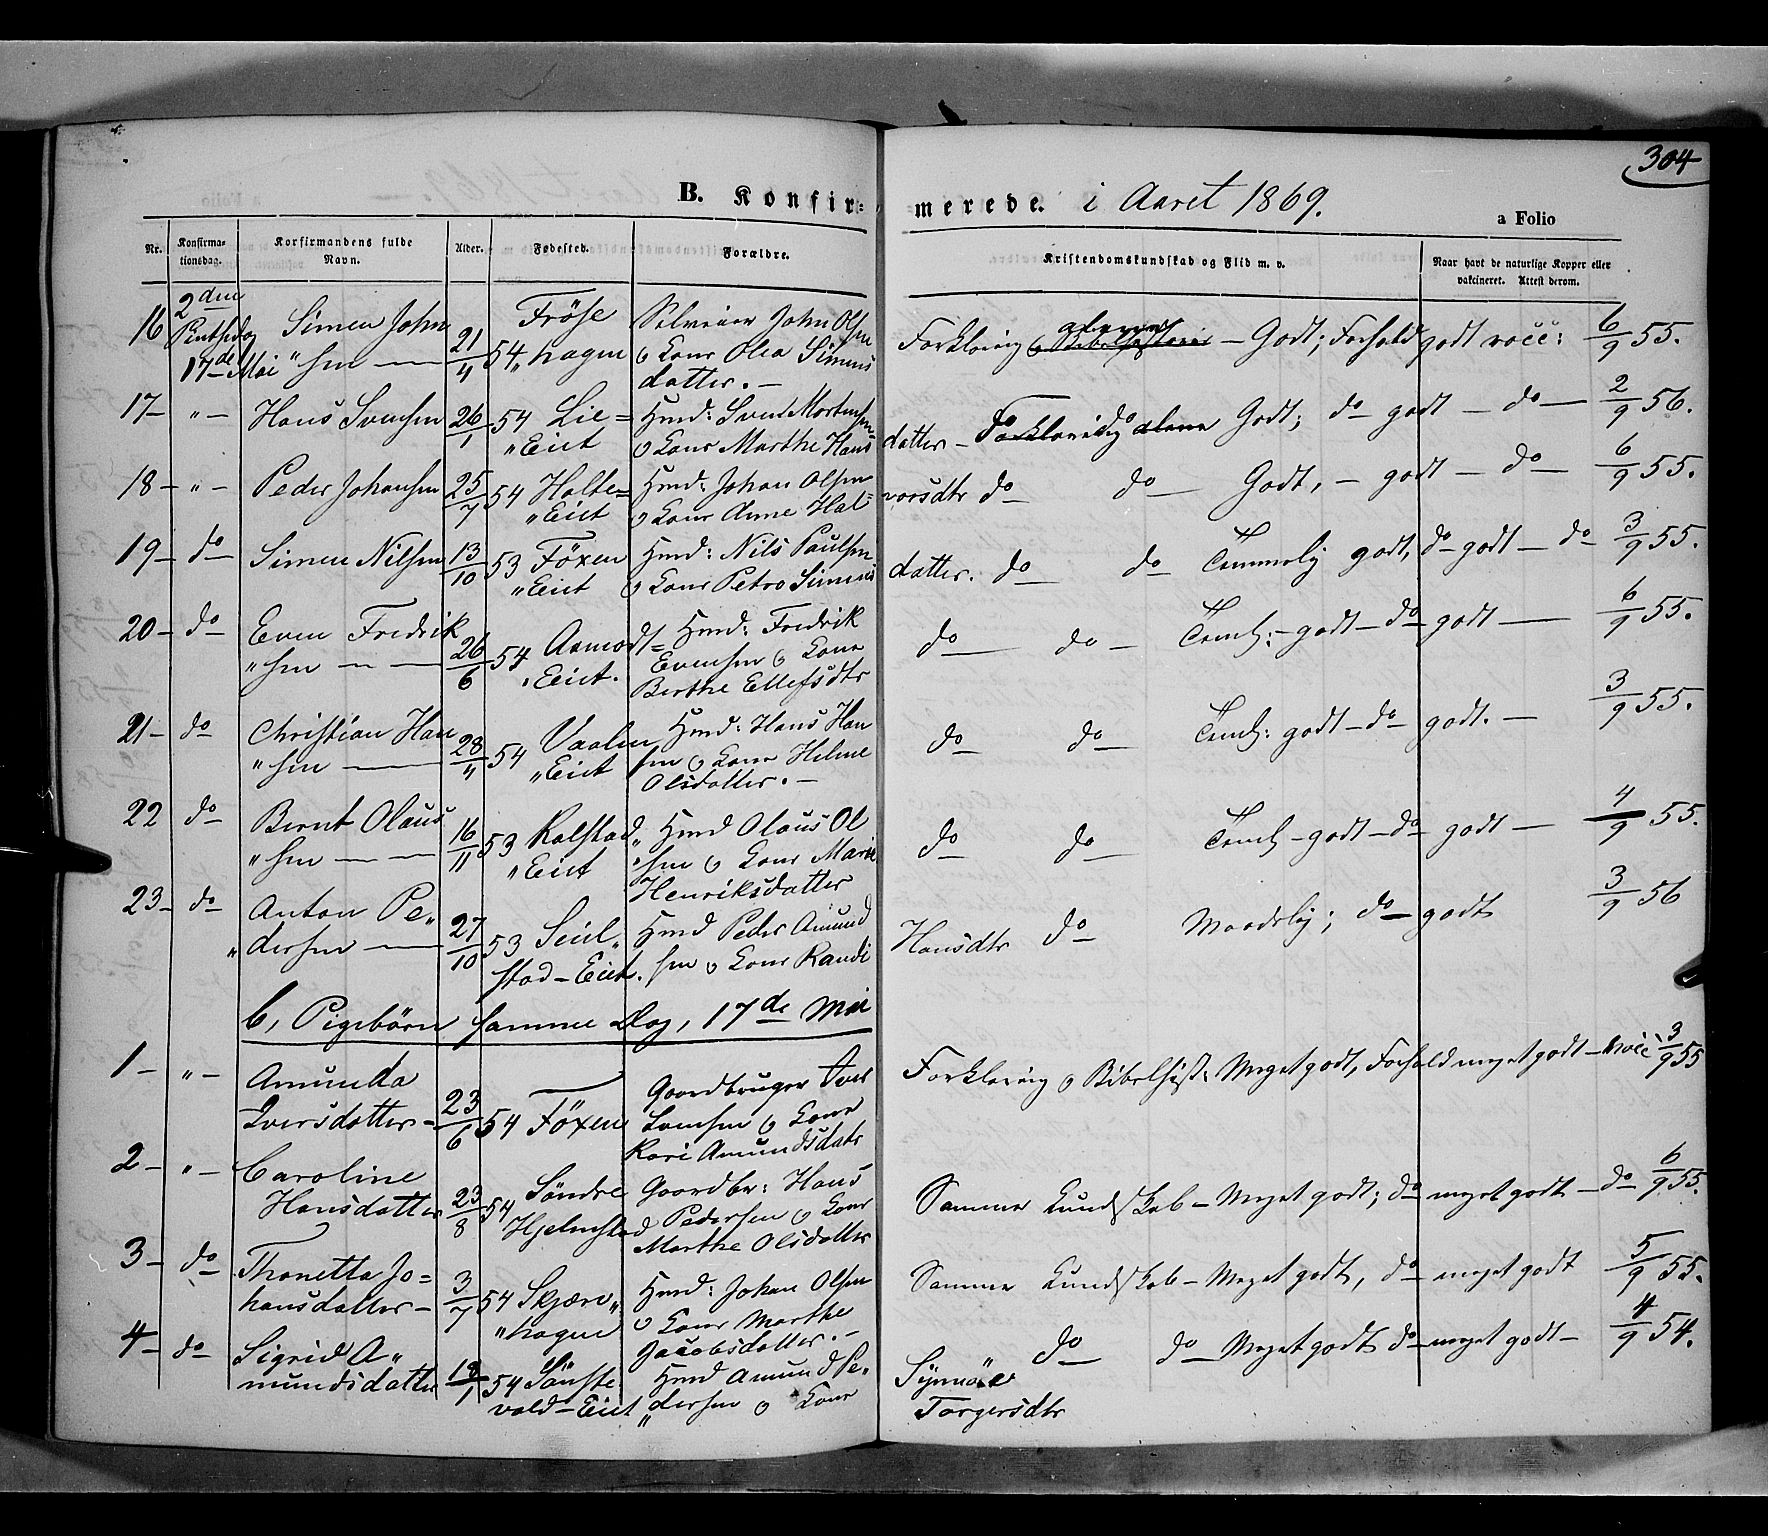 304
B. Konfir-
merede. i Aaret 1869.
a Folio
Nr.
Konfirma-
tionsdag.
Konfirmandens fulde
Navn.
Alder.
Fødested.
Forældre.
Kristendomskundskab og Flid m. v.
Naar havt de naturlige Kopper eller
vakcineret. Attest derom.
16 2den Pintsedag 17de Mai Simen John „sen — 21/4 54 Fröse „hagen Selveier John Olsen o Kone Olea Simens datter. — Forklaring alene — Godt; Forhold godt vacc: 6/9 55.
17 — „ — Hans Svensen 26/1 54 Lie= „Eiet Hmd: Sven Mortensen o Kone Marthe Hans datter — do Godt; do godt — do — 2/9 56.
18 — „ — Peder Johansen 25/7 54 Holte= „Eiet Hmd: Johan Olsen o Kone Anne Hal= vorsdtr do do — Godt, — godt — do — 6/9 55.
19 — do Simen Nilsen 13/10 53 Föxen „Eiet Hmd: Nils Paulsen o Kone Petra Simens datter. do do Temmelig godt, do godt — do 3/9 55.
20 — do Even Fredrik „sen — 26/6 54 Aamodt= „Eiet. Hmd: Fredrik Evensen o Kone Berthe Ellefsdtr do — do — Teml: — godt — do godt — 6/9 55.
21 — do Christian Han „sen — 28/11 54 Vaalen „Eiet Hmd: Hans Han sen o Kone Helene Olsdatter. — do do Teml: godt — do godt. — 3/9 55.
22 do Bernt Olaus „sen — 16/11 53 Kalstad „Eiet Hmd Olaus Ol „sen o Kone Marie Henriksdatter do do Teml — godt — do godt — 4/9 55.
23 — do Anton Pe„ „dersen — 27/10 53 Seiel„ stad — Eiet. Hmd Peder Amund sen o Kone Randi Hansdtr do Maadelig; do — godt 3/9 56
b, Pigebörn samme Dag, 17de Mai
1 — „ — Amunda Iversdatter — 23/6 54 Föxen Gaardbruger Iver Svensen o Kone Kari Amundsdatr Forklaring o Bibelhist: Meget godt, Forhold meget godt — vacc 3/9 55
2 — „ — Caroline Hansdatter 23/8 54 Söndre Hjelmstad Gaardbr: Hans Pedersen o Kone Marthe Olsdatter Samme Kundskab — Meget godt; do meget godt — do 6/9 55.
3 — do Thonetta Jo= hansdatter — 3/7 54 Skjære„ „hagen Hmd: Johan Olsen o Kone Marthe Jacobsdatter. — Samme Kundskab — Meget godt, do meget godt 5/9 55.
4 — do Sigrid A„ mundsdatter 54 vold — Eiet Hmd Amund Pe„ „dersen o Kone Torgersdtr do do Meget godt do meget godt — 4/9 54.